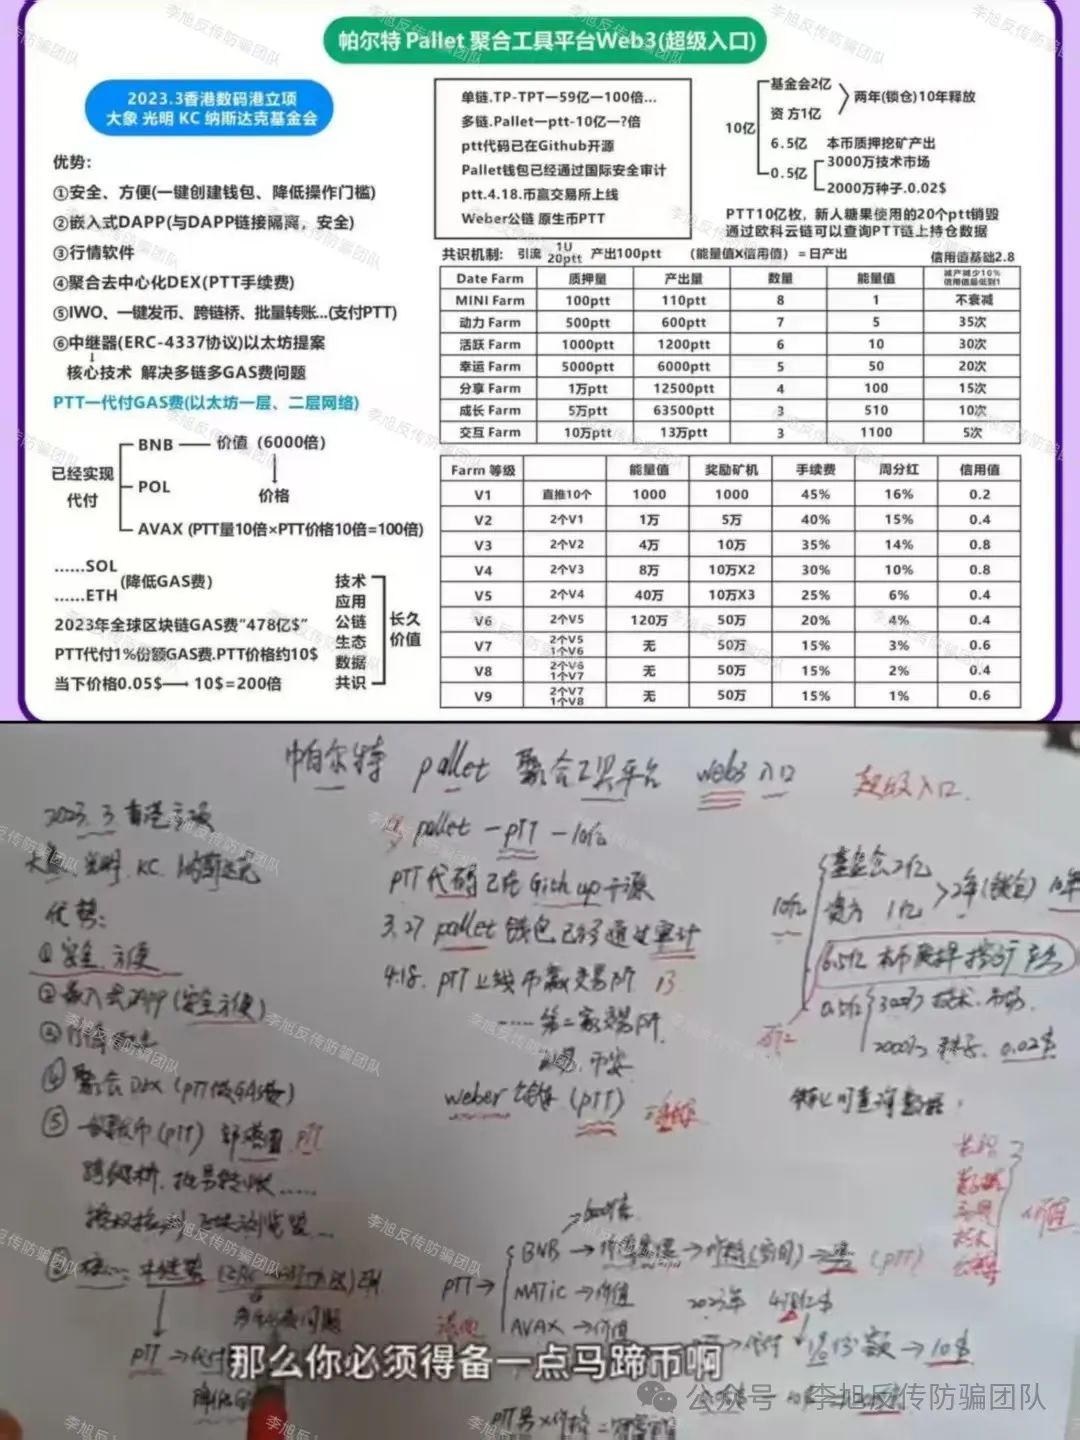 帕尔特 Pallet 聚合工具平台Web3(超级入口)
2023.3香港数码港立项
大象 光明 KC 纳斯达克基金会
优势:
①安全、方便(一键创建钱包、降低操作门槛)
②嵌入式DAPP(与DAPP链接隔离，安全)
③行情软件
④聚合去中心化DEX(PTT手续费)
⑤IWO、一键发币、跨链桥、批量转账...(支付PTT)
⑥中继器(ERC-4337协议)以太坊提案
核心技术 解决多链多GAS费问题
PTT一代付GAS费(以太坊一层、二层网络)
已经实现
代付
BNB 价值（6000倍）
价格
POL
AVAX (PTT量10倍×PTT价格10倍=100倍)
......SOL
......ETH
(降低GAS费)
2023年全球区块链GAS费"478亿$"
PTT代付1%份额GAS费.PTT价格约10$
当下价格0.05$→ 10$=200倍
技术
应用
公链
生态
数据
共识
长久
价值
单链.TP-TPT一59亿一100倍...
多链.Pallet一ptt-10亿一?倍
ptt代码已在Github开源
Pallet钱包已经通过国际安全审计
ptt.4.18.币赢交易所上线
Weber公链 原生币PTT
10亿
基金会2亿
资 方1亿
两年(锁仓)10年释放
6.5亿 本币质押挖矿产出
0.5亿
3000万技术市场
2000万种子.0.02$
PTT10亿枚，新人糖果使用的20个ptt销毁
通过欧科云链可以查询PTT链上持仓数据
共识机制: 引流 1U 20ptt 产出100ptt （能量值X信用值）=日产出 信用值基础2.8
Date Farm 质押量 产出量 数量 能量值 减产减少10% 信用值最低到1
MINI Farm 100ptt 110ptt 8 1 不衰减
动力 Farm 500ptt 600ptt 7 5 35次
活跃 Farm 1000ptt 1200ptt 6 10 30次
幸运 Farm 5000ptt 6000ptt 5 50 20次
分享 Farm 1万ptt 12500ptt 4 100 15次
成长 Farm 5万ptt 63500ptt 3 510 10次
交互 Farm 10万ptt 13万ptt 3 1100 5次
Farm 等级 能量值 奖励矿机 手续费 周分红 信用值
V1 直推10个 1000 1000 45% 16% 0.2
V2 2个V1 1万 5万 40% 15% 0.4
V3 2个V2 4万 10万 35% 14% 0.8
V4 2个V3 8万 10万X2 30% 10% 0.8
V5 2个V4 40万 10万X3 25% 6% 0.4
V6 2个V5 120万 50万 20% 4% 0.4
V7 2个V5 1个V6 无 50万 15% 3% 0.6
V8 2个V6 1个V7 无 50万 15% 2% 0.4
V9 2个V7 1个V8 无 50万 15% 1% 0.6
帕尔特 pallet 聚合工具平台 web3入口 超级入口
2023.3香港立项
大象.光明.KC.纳斯达克
优势:
①安全.方便
②嵌入式DAPP(安全方便)
④聚合Dex(PTT做GAS费)
⑤一键发币(PTT)都满足PTT
跨链桥.批量转账......
pallet一PTT一10亿
PTT代码已在Github开源
3.27pallet钱包已经通过审计
4.18.PTT上线币赢交易所
......第二家交易所
币安
weber公链(PTT)
10亿
基金会2亿
资方1亿
2年(锁仓)10年
6.5亿本币质押挖矿产出
0.5亿
300万技术.市场
2000万种子.0.02$
链上可查询数据.
PTT→
BNB→价值
MATIC→价值
AVAX→价值
2023年 478亿$
代付 1%份额→10$
PTT→代付
PTT量×价格=
那么你必须得备一点马蹄币啊
公众号·李旭反传防骗团队
李旭反传防骗团队